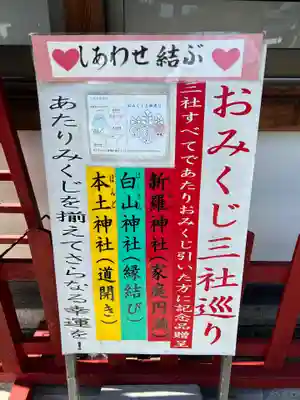 しあわせ結ぶ
おみくじ三社巡り
三社すべてであたりおみくじ引いた方に記念品贈呈
新羅神社(家庭円満)
白山神社(縁結び)
本土神社(道開き)
ほんど
あたりみくじを揃えてさらなる幸運を!